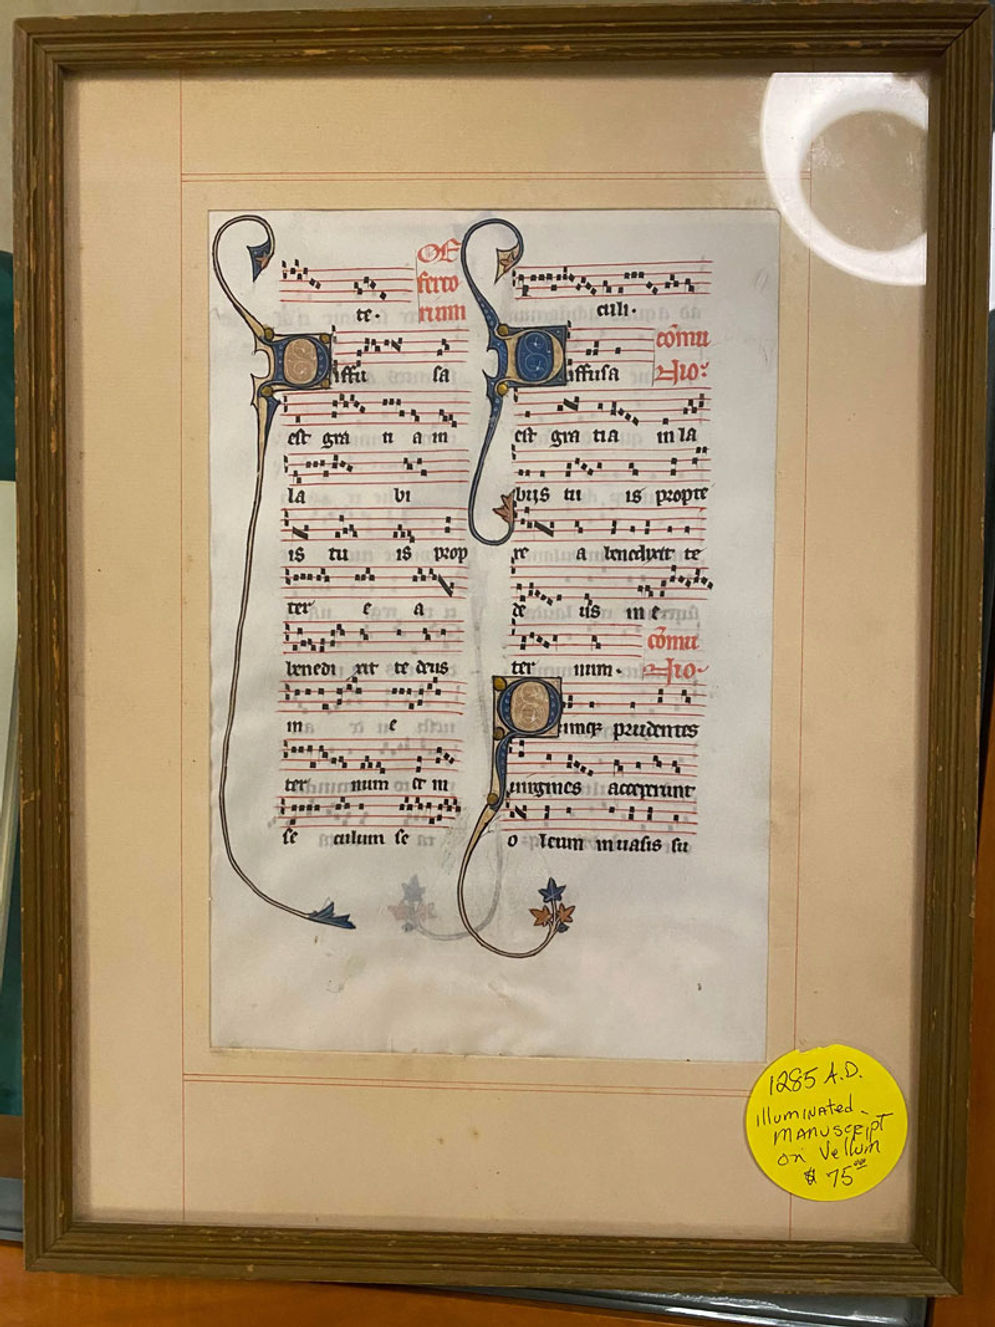 te. Offerto
rium
Diffu sa
est gra ti a in
la bi
is tu is prop
ter e a
benedi xit te deus
in e
ter num et in
se culum se
culi.
cōmu
nio.
Diffusa
est gra tia in la
bijs tu is propte
re a benedixit te
de us in e
ter num. cōmu
nio.
Quinqꝫ prudentes
uirgines acceperunt
o leum in uasis su
1285 A.D.
illuminated
MANUSCRIPT
on Vellum
$ 75⁰⁰